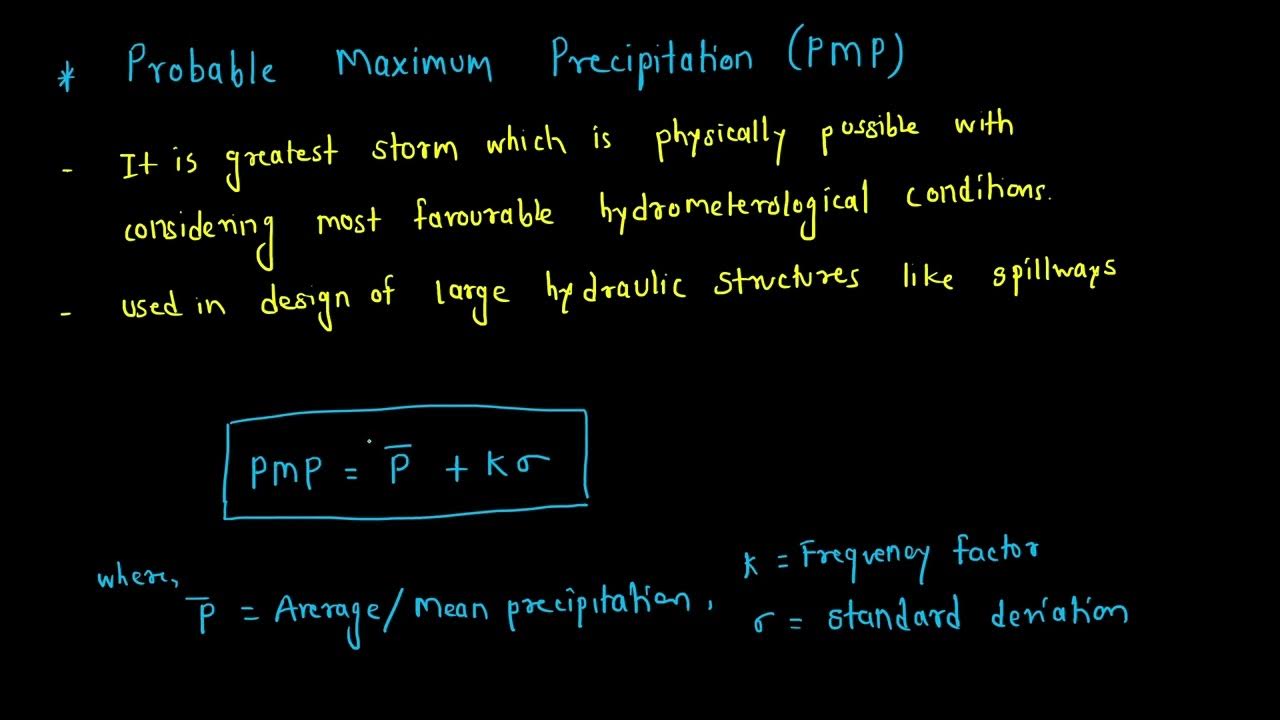 * Probable Maximum Precipitation (PMP)
- It is greatest storm which is physically possible with
considering most favourable hydrometerological conditions.
- used in design of large hydraulic structures like spillways
PMP = P̅ + kσ
where,
P̅ = Average/Mean precipitation,
k = Frequency factor
σ = standard deviation